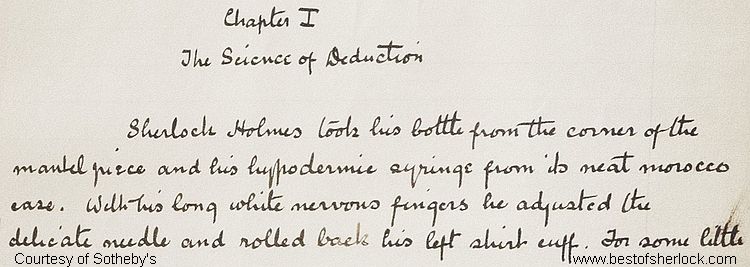 Chapter I
The Science of Deduction
Sherlock Holmes took his bottle from the corner of the
mantel piece and his hypodermic syringe from its neat morocco
case. With his long white nervous fingers he adjusted the
delicate needle and rolled back his left shirt cuff. For some little
Courtesy of Sotheby's
www.bestofsherlock.com